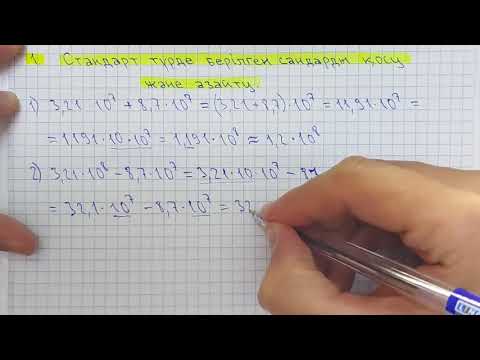 1 Стандарт түрде берілген сандарды қосу
және азайту.
1) 3,21 · 10⁷ + 8,7 · 10⁷ = (3,21 + 8,7) · 10⁷ = 11,91 · 10⁷ =
= 1,191 · 10 · 10⁷ = 1,191 · 10⁸ ≈ 1,2 · 10⁸
2) 3,21 · 10⁸ − 8,7 · 10⁷ = 3,21 · 10 · 10⁷ − 8,7
= 32,1 · 10⁷ − 8,7 · 10⁷ = 32